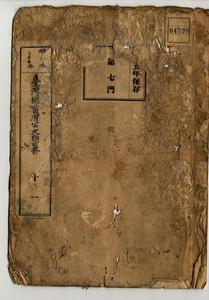 五年保存
第七門
明治
臺灣總督府公文類纂
十一
64799